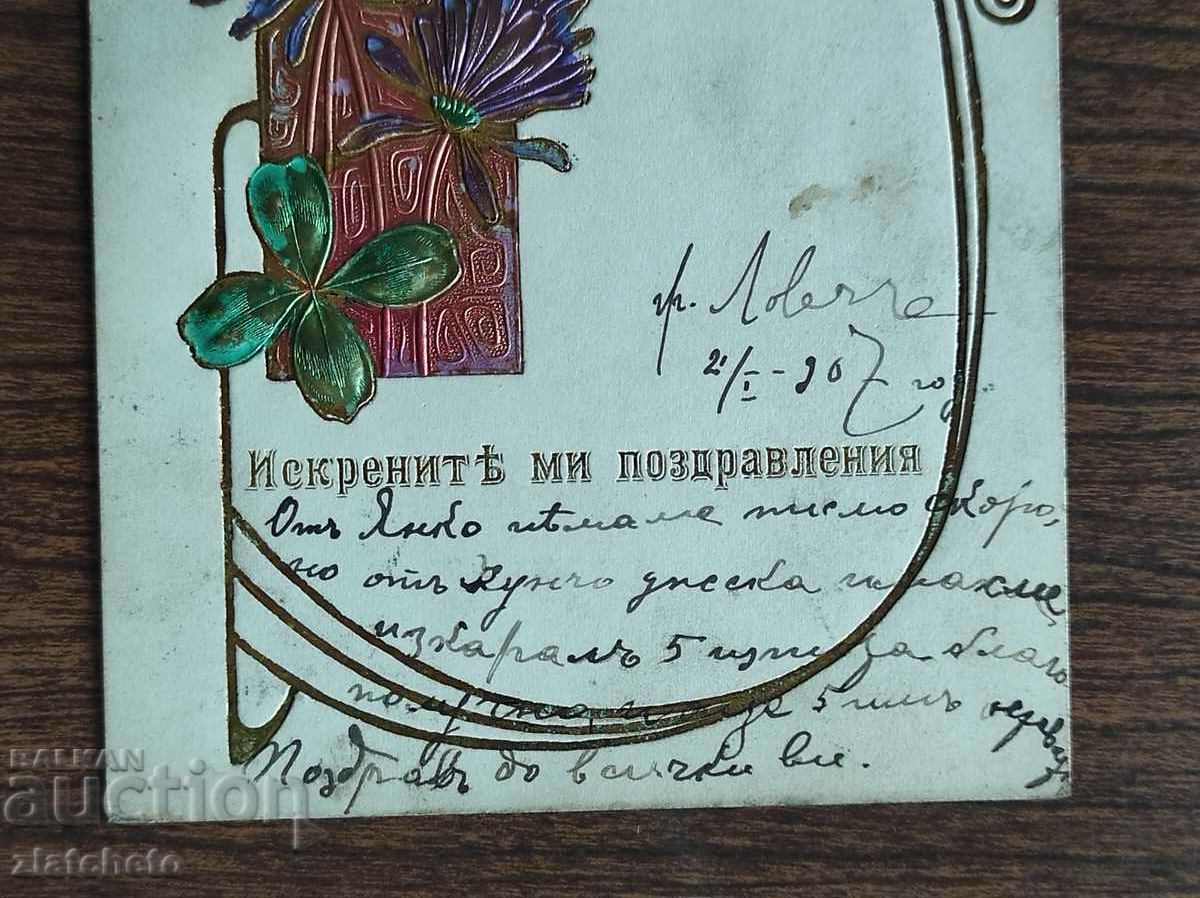 гр. Ловечъ
2/I - 907 год.
Искренитѣ ми поздравления
Отъ Янко нѣмаме писмо скоро,
но отъ Кунчо днеска
изкаралъ 5 изпи за благо
получна и за 5 ималъ
Поздравъ до всички ви.
BALKAN
auction
zlatcheto